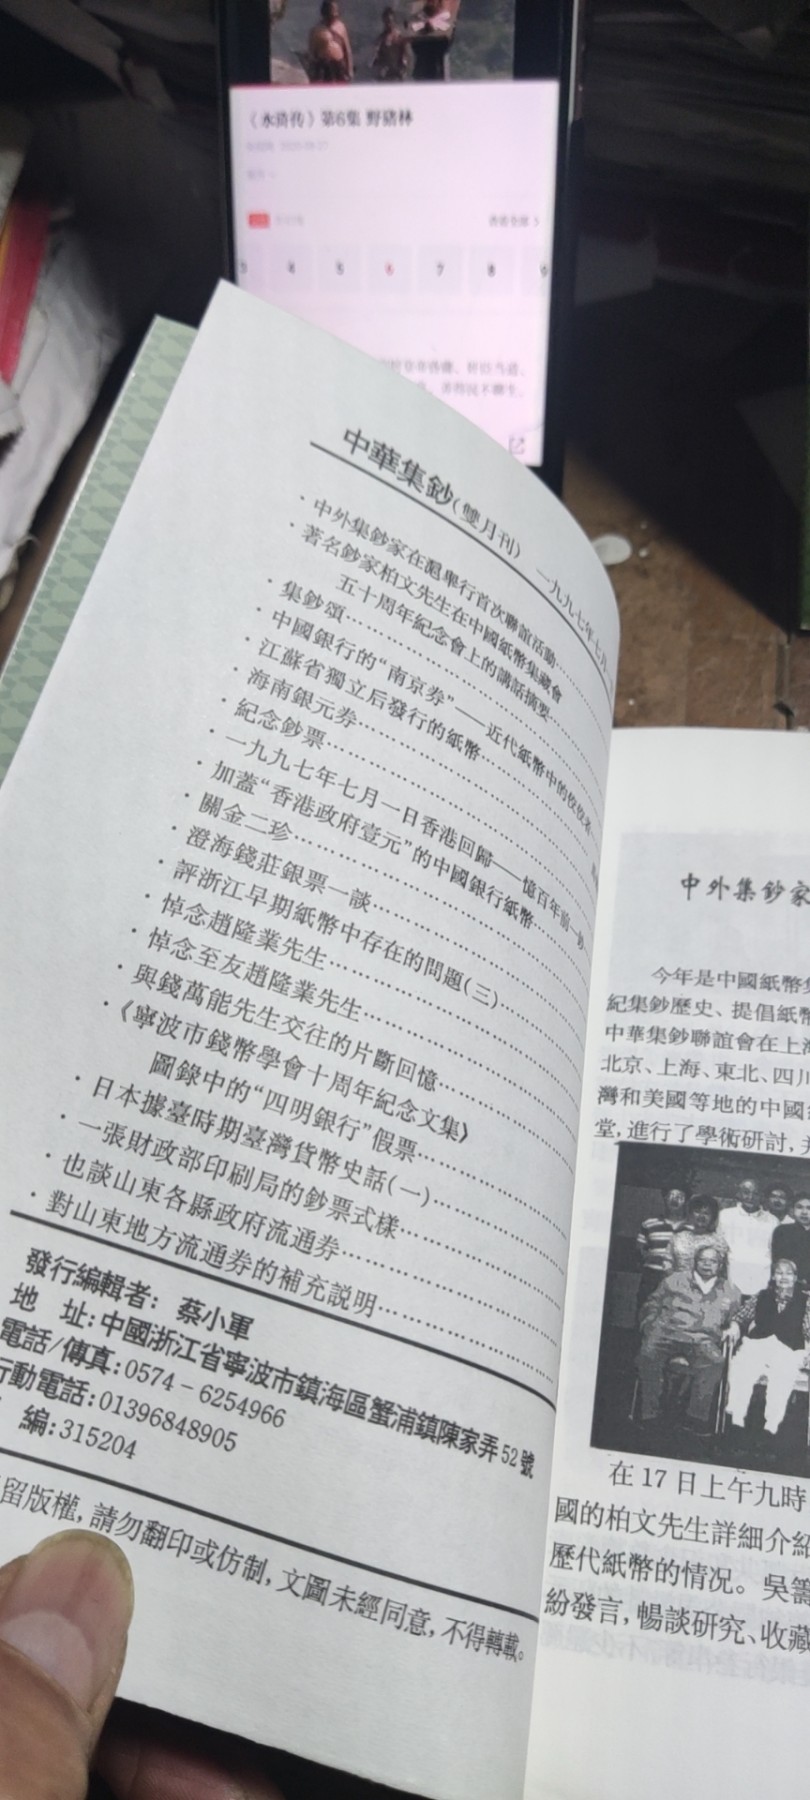 《水浒传》第6集 野猪林
4 5 6 7 8 9
中華集鈔(雙月刊) 一九九七年七月
·中外集鈔家在滬舉行首次聯誼活動
·著名鈔家柏文先生在中國紙幣集藏會
五十周年紀念會上的講話摘要
·集鈔頌
·中國銀行的“南京券”——近代紙幣中的佼佼者
·江蘇省獨立后發行的紙幣
·海南銀元券
·紀念鈔票
·一九九七年七月一日香港回歸——憶百年前一鈔
·加蓋“香港政府壹元”的中國銀行紙幣
·關金二珍
·澄海錢莊銀票一談
·評浙江早期紙幣中存在的問題(三)
·悼念趙隆業先生
·悼念至友趙隆業先生
·與錢萬能先生交往的片斷回憶
·《寧波市錢幣學會十周年紀念文集》
圖錄中的“四明銀行”假票
·日本據臺時期臺灣貨幣史話(一)
·一張財政部印刷局的鈔票式樣
·也談山東各縣政府流通券
·對山東地方流通券的補充説明
發行編輯者: 蔡小軍
地 址:中國浙江省寧波市鎮海區蟹浦鎮陳家弄52號
電話/傳真:0574-6254966
行動電話:01396848905
編:315204
留版權,請勿翻印或仿制,文圖未經同意,不得轉載。
中外集鈔家
今年是中國紙幣集
紀集鈔歷史、提倡紙幣
中華集鈔聯誼會在上海
北京、上海、東北、四川
灣和美國等地的中國
堂,進行了學術研討,
在17日上午九時
國的柏文先生詳細介紹
歷代紙幣的情况。吳籌
紛發言,暢談研究、收藏